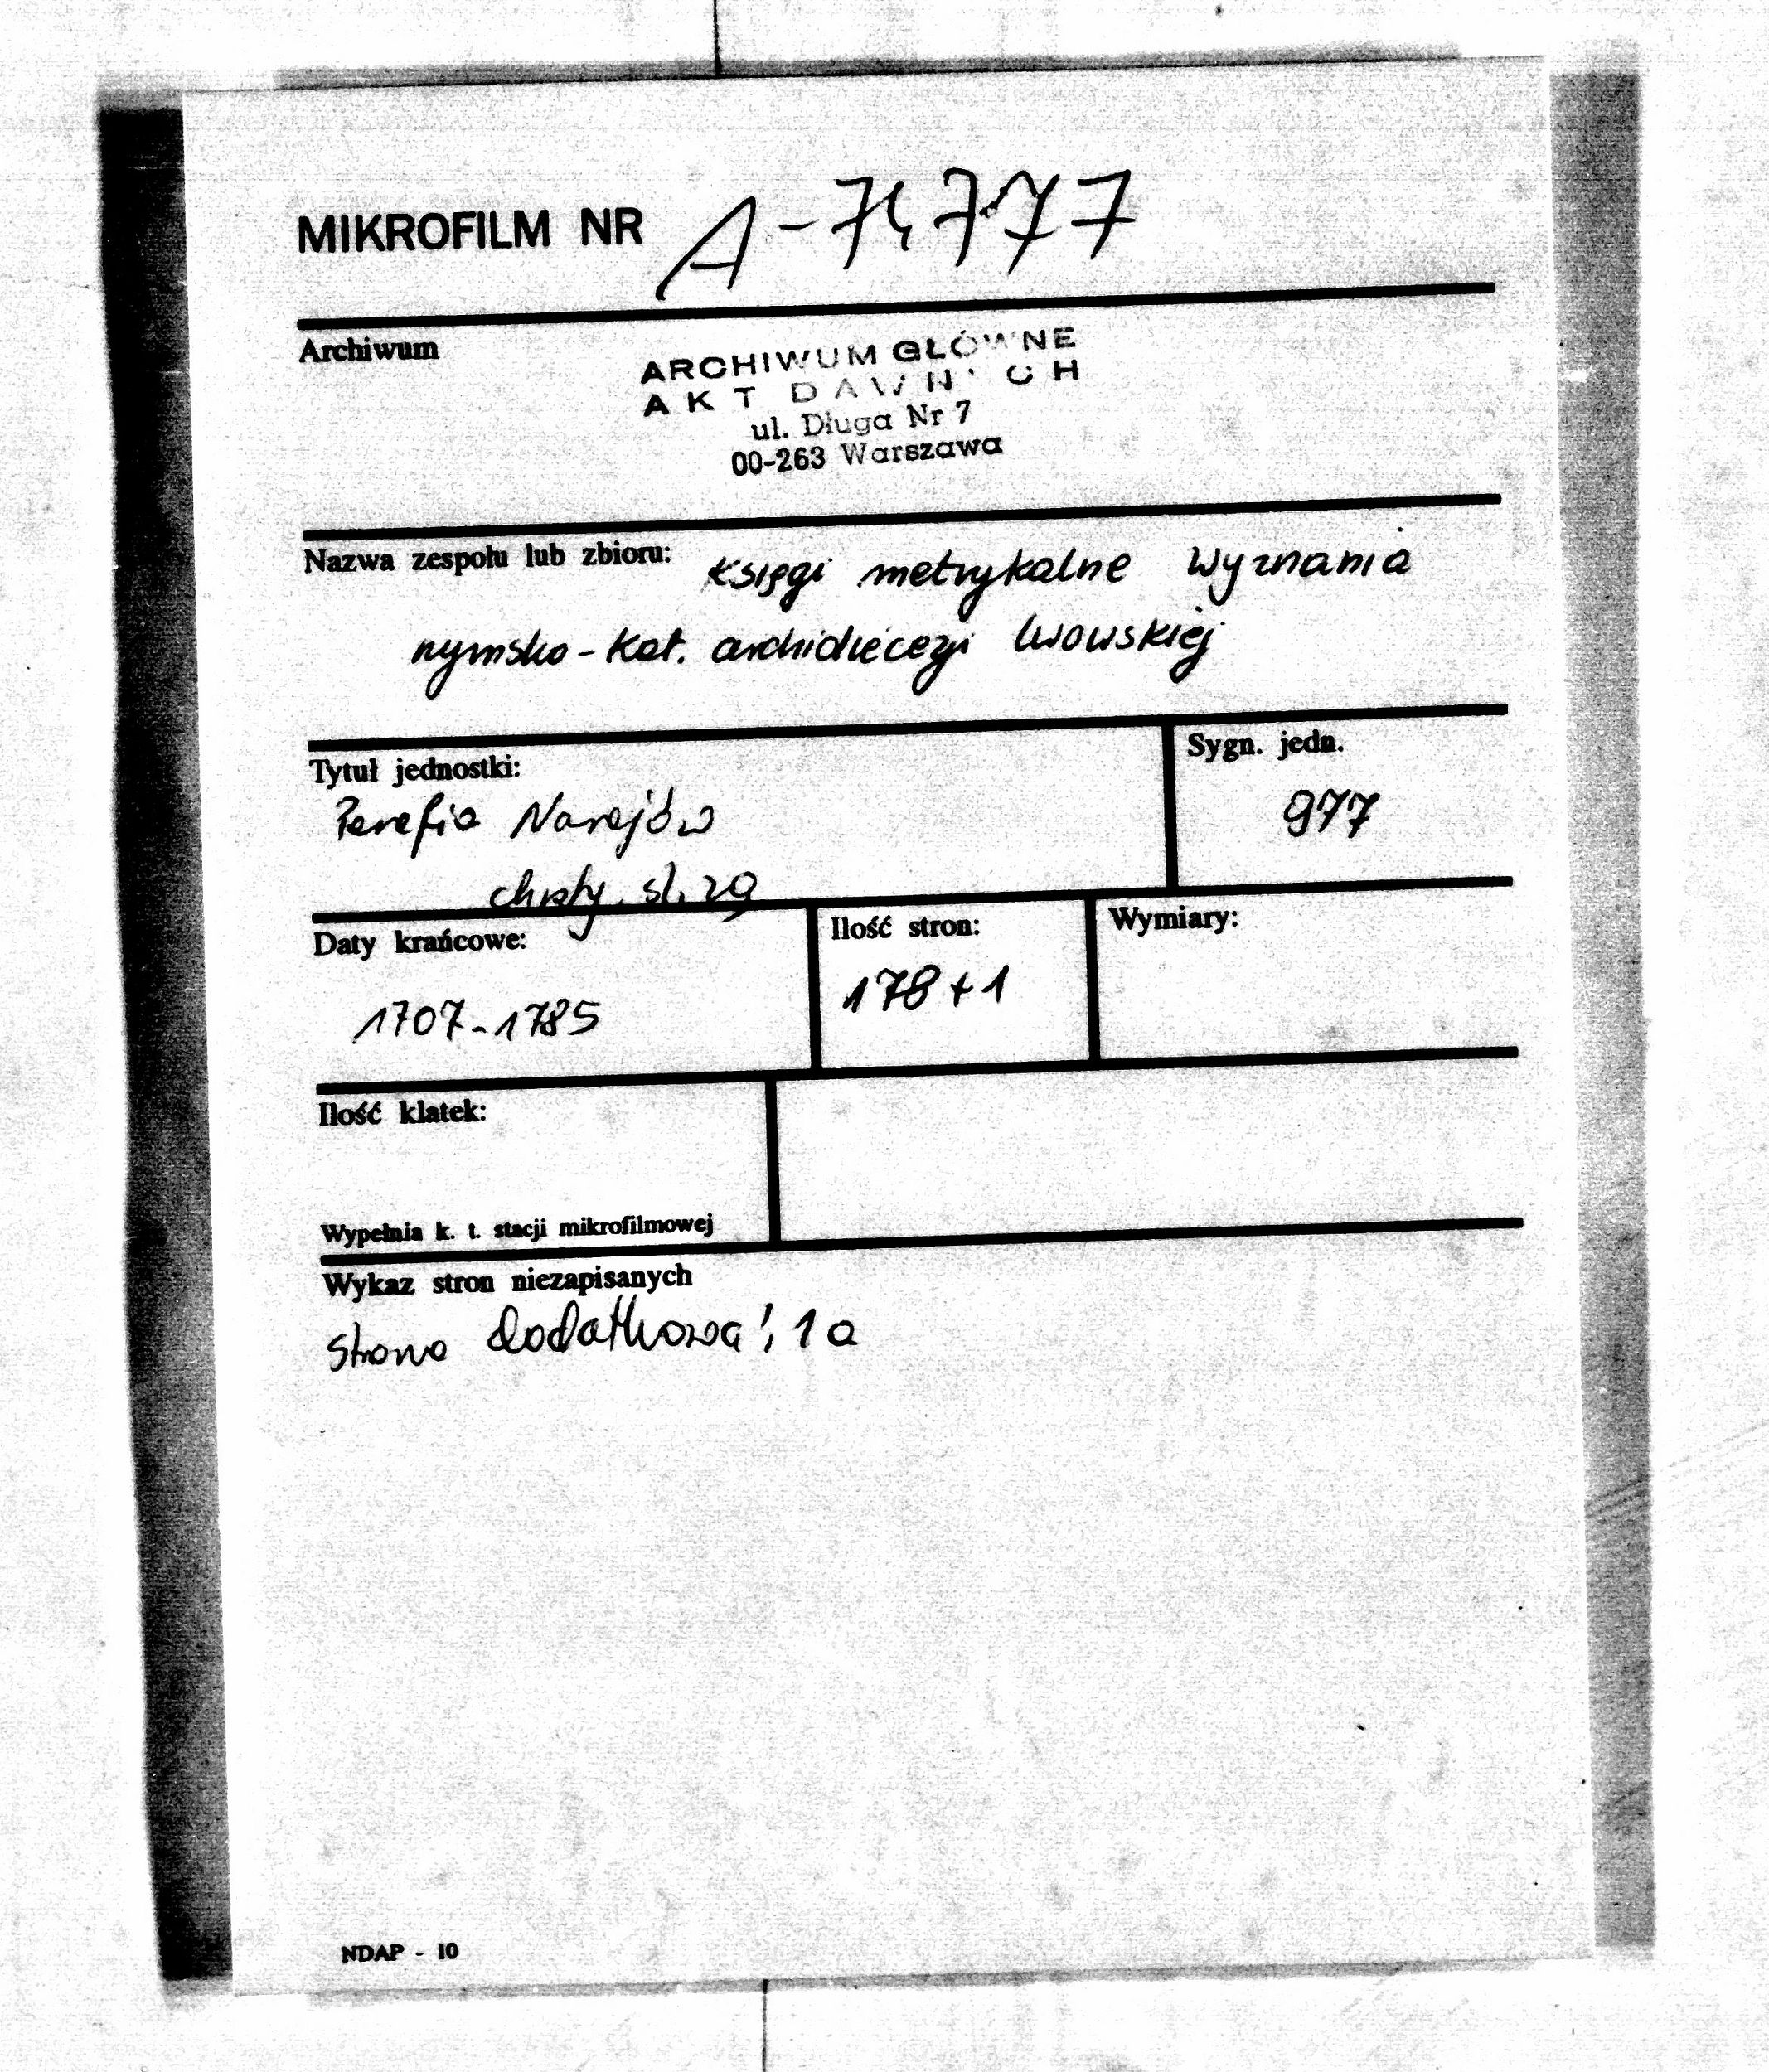 MIKROFILM NR A-74777
Archiwum
ARCHIWUM GŁÓWNE
AKT DAWNYCH
ul. Długa Nr 7
00-263 Warszawa
Nazwa zespołu lub zbioru: Księgi metrykalne wyznania
rymsko-kat. archidiecezji lwowskiej
Tytuł jednostki:
Sygn. jedn.
Parafia Narajów
977
chrzty, śl. zg
Daty krańcowe:
Ilość stron:
Wymiary:
1707-1785
178+1
Ilość klatek:
Wypełnia k. t. stacji mikrofilmowej
Wykaz stron niezapisanych
strona dodatkowa: 1a
NDAP - 10